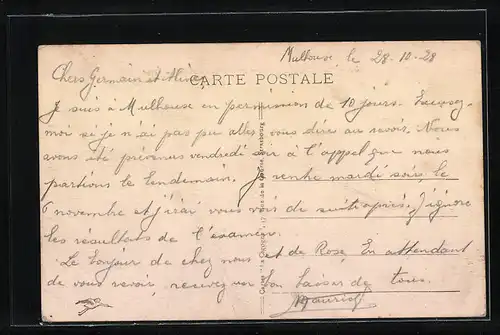 Mulhouse, le 28-10-28
Chers Germain et Aline,
CARTE POSTALE
Je suis à Mulhouse en permission de 10 jours. Excusez-
moi si je n'ai pas pu aller vous dire au revoir. Nous
avons été prévenus vendredi soir à l'appel que nous
partions le lendemain. Je rentre mardi soir le
6 novembre et j'irai vous voir de suite après. J'ignore
les résultats de l'examen.
Le bonjour de chez nous et de Rose. En attendant
de vous revoir, recevez un bon baiser de tous.
Maurice